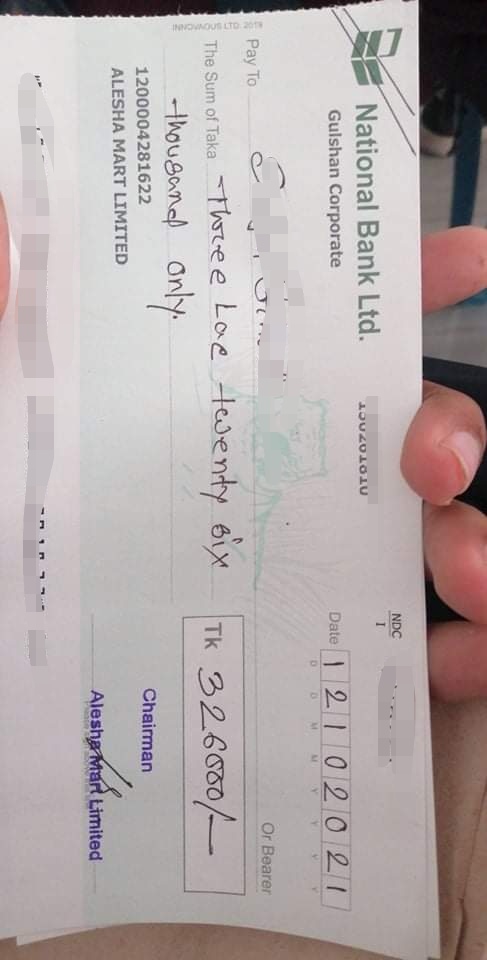 National Bank Ltd.
Gulshan Corporate
NDC
I
Date 12102021
D D M M Y Y Y Y
Pay To
Or Bearer
The Sum of Taka Three Lac twenty six
thousand only.
Tk 326000/-
1200004281622
ALESHA MART LIMITED
Chairman
Alesha Mart Limited
INNOVAOUS LTD. 2019